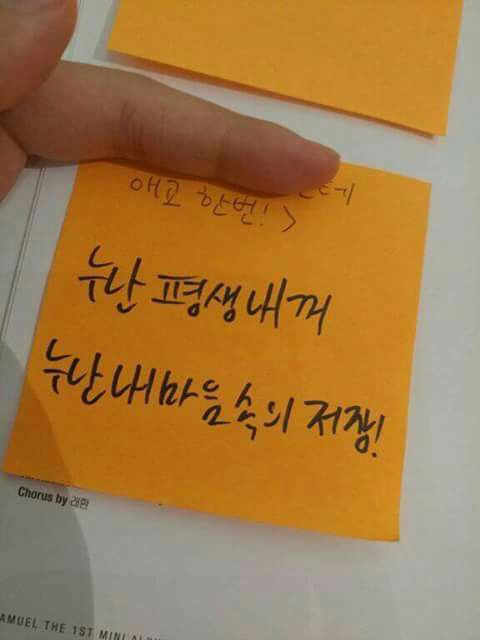 애교 한번! >
누난 평생 내꺼
누난 내 마음속의 저장!
Chorus by 래환
AMUEL THE 1ST MINI AL